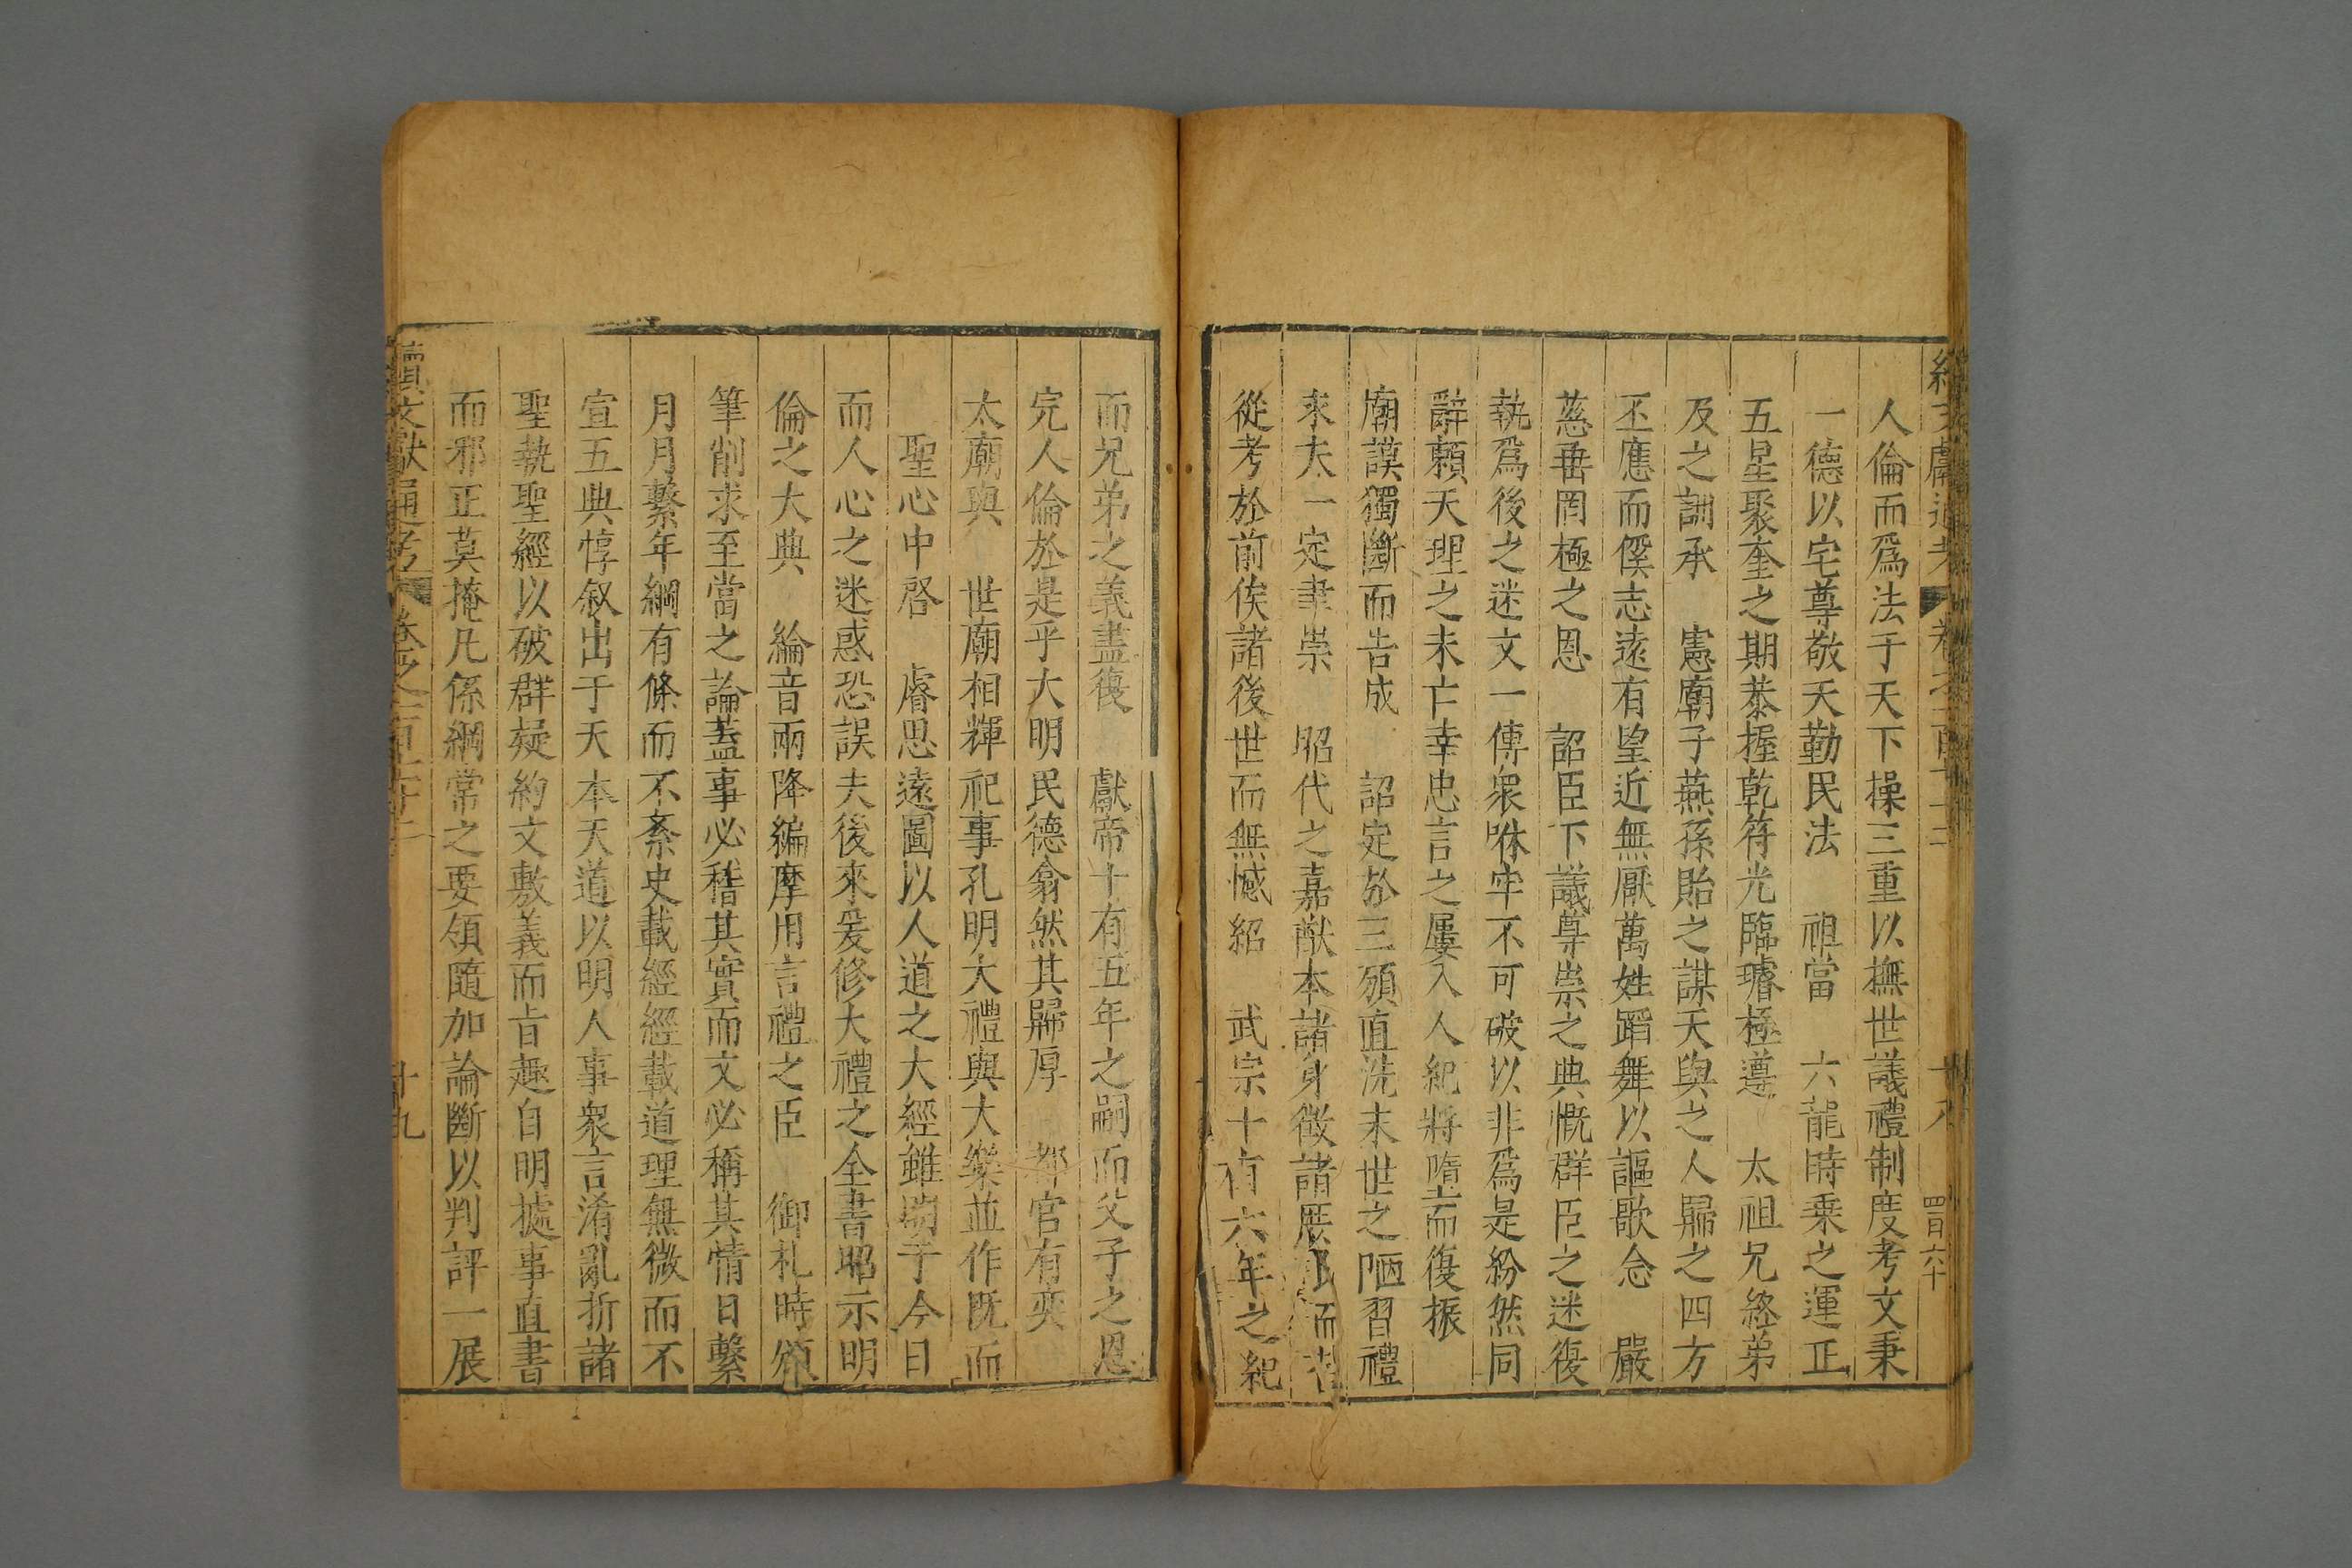 人倫而爲法于天下操三重以撫世議禮制度考文秉
一德以宅尊敬天勤民法　祖當　六龍時乗之運正
五星聚奎之期恭握乾符光臨璿極遵　太祖兄終弟
及之訓承　憲廟子燕孫貽之謀天與之人歸之四方
丕應而徯志遠有望近無厭萬姓蹈舞以謳歌念　嚴
慈垂罔極之恩　詔臣下議尊崇之典慨群臣之迷復
執爲後之迷文一傳衆咻牢不可破以非爲是紛然同
辭頼天理之未亡幸忠言之屢入人紀將隳而復振
廟謨獨斷而告成　詔定於三頒直洗末世之陋習禮
來太一定聿崇　昭代之嘉猷本諸身徵諸庶而
從考於前俟諸後世而無憾紹　武宗十有六年之紀
而兄弟之義盡復　獻帝十有五年之嗣而父子之恩
完人倫於是乎大明民德翕然其歸厚　都官有奕
太廟與　世廟相輝祀事孔明大禮與大樂並作既而
聖心中啓　睿思遠圖以人道之大經雖明于今日
而人心之迷惑恐誤夫後來爰修大禮之全書昭示明
倫之大典　綸音兩降編摩用言禮之臣　御札時頒
筆削求至當之論蓋事必稽其實而文必稱其情日繫
月月繫年綱有條而不紊史載經經載道理無微而不
宣五典惇叙出于天本天道以明人事衆言淆亂折諸
聖執聖經以破群疑約文敷義而旨趣自明據事直書
而邪正莫掩凡係綱常之要領隨加論斷以判評一展
續文獻通考　卷之一百七十二　十九